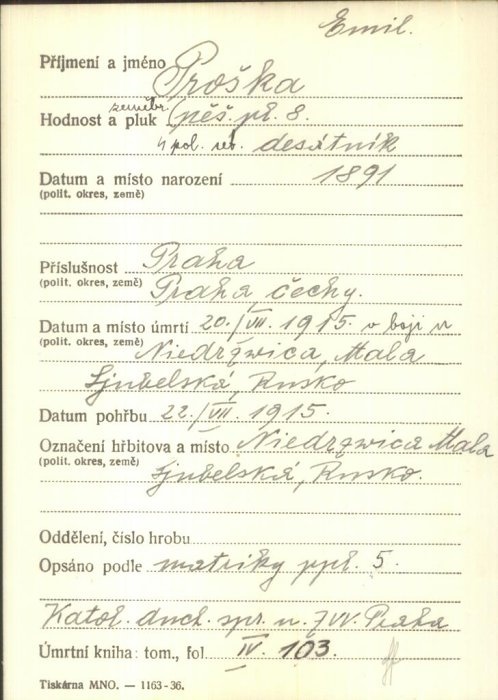 Emil.
Příjmení a jméno Proška
zeměbr.
Hodnost a pluk pěš. pl. 8.
4 pol. set. desátník
Datum a místo narození 1891
(polit. okres, země)
Příslušnost Praha
(polit. okres, země) Praha, Čechy.
Datum a místo úmrtí 20./VII. 1915. v boji u
(polit. okres, země) Niedrzwica, Mala
Ljubelská, Rusko
Datum pohřbu 22./VII. 1915.
Označení hřbitova a místo Niedrzwica Mala
(polit. okres, země) Ljubelská, Rusko.
Oddělení, číslo hrobu
Opsáno podle matriky ppl. 5.
Katol. duch. spr. u ZVV. Praha
Úmrtní kniha: tom., fol. IV. 103.
Tiskárna MNO. — 1163-36.